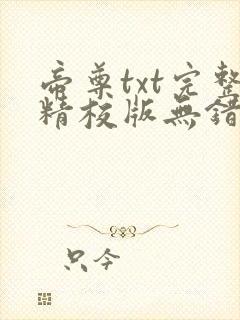 帝尊txt完整
精校版無錯
只今